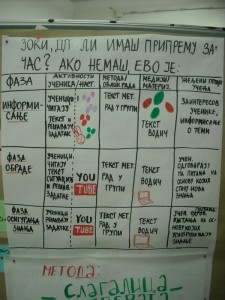 ЗОКИ, ДА ЛИ ИМАШ ПРИПРЕМУ ЗА
ЧАС? АКО НЕМАШ, ЕВО ЈЕ:
ФАЗА
АКТИВНОСТИ
УЧЕНИКА/НАСТ.
МЕТОДА/
ОБЛИК РАДА
МЕДИЈИ/
МАТЕРИЈ.
ИСХОДИ
УЧЕЊА
ИНФОРМИ-
САЊЕ
УЧЕНИЦИ
ЧИТАЈУ
ТЕКСТ И
РЕШАВАЈУ
ЗАДАТКЕ
ТЕКСТ МЕТ.
РАД У ГРУПИ
ТЕКСТ
ВОДИЧ
ЗАИНТЕРЕСОВ
УЧЕНИКЕ,
ИНФОРМИСАЊЕ
О ТЕМИ
ФАЗА
ОБРАДЕ
УЧЕНИЦИ
ЧИТАЈУ
ТЕКСТ
ЗАДАТКЕ
YOU
TUBE
ТЕКСТ МЕТ.
РАД У
ГРУПИ
ТЕКСТ
ВОДИЧ
УЧЕН.
ОДГОВАРАЈУ
НА ПИТАЊА НА
ОСНОВУ КОЈИХ
СТИЧУ НОВА
ЗНАЊА
ФАЗА
ЗНАЊА
УЧЕНИЦИ
РЕШАВАЈУ
ЗАДАТКЕ
YOU
TUBE
ТЕКСТ МЕТ.
РАД У
ГРУПИ
ТЕКСТ
ВОДИЧ
НА ПИТАЊА НА ОС-
НОВУ КОЈИХ
ЗНАЊЕ
МЕТОДА:
СЛАГАЛИЦА